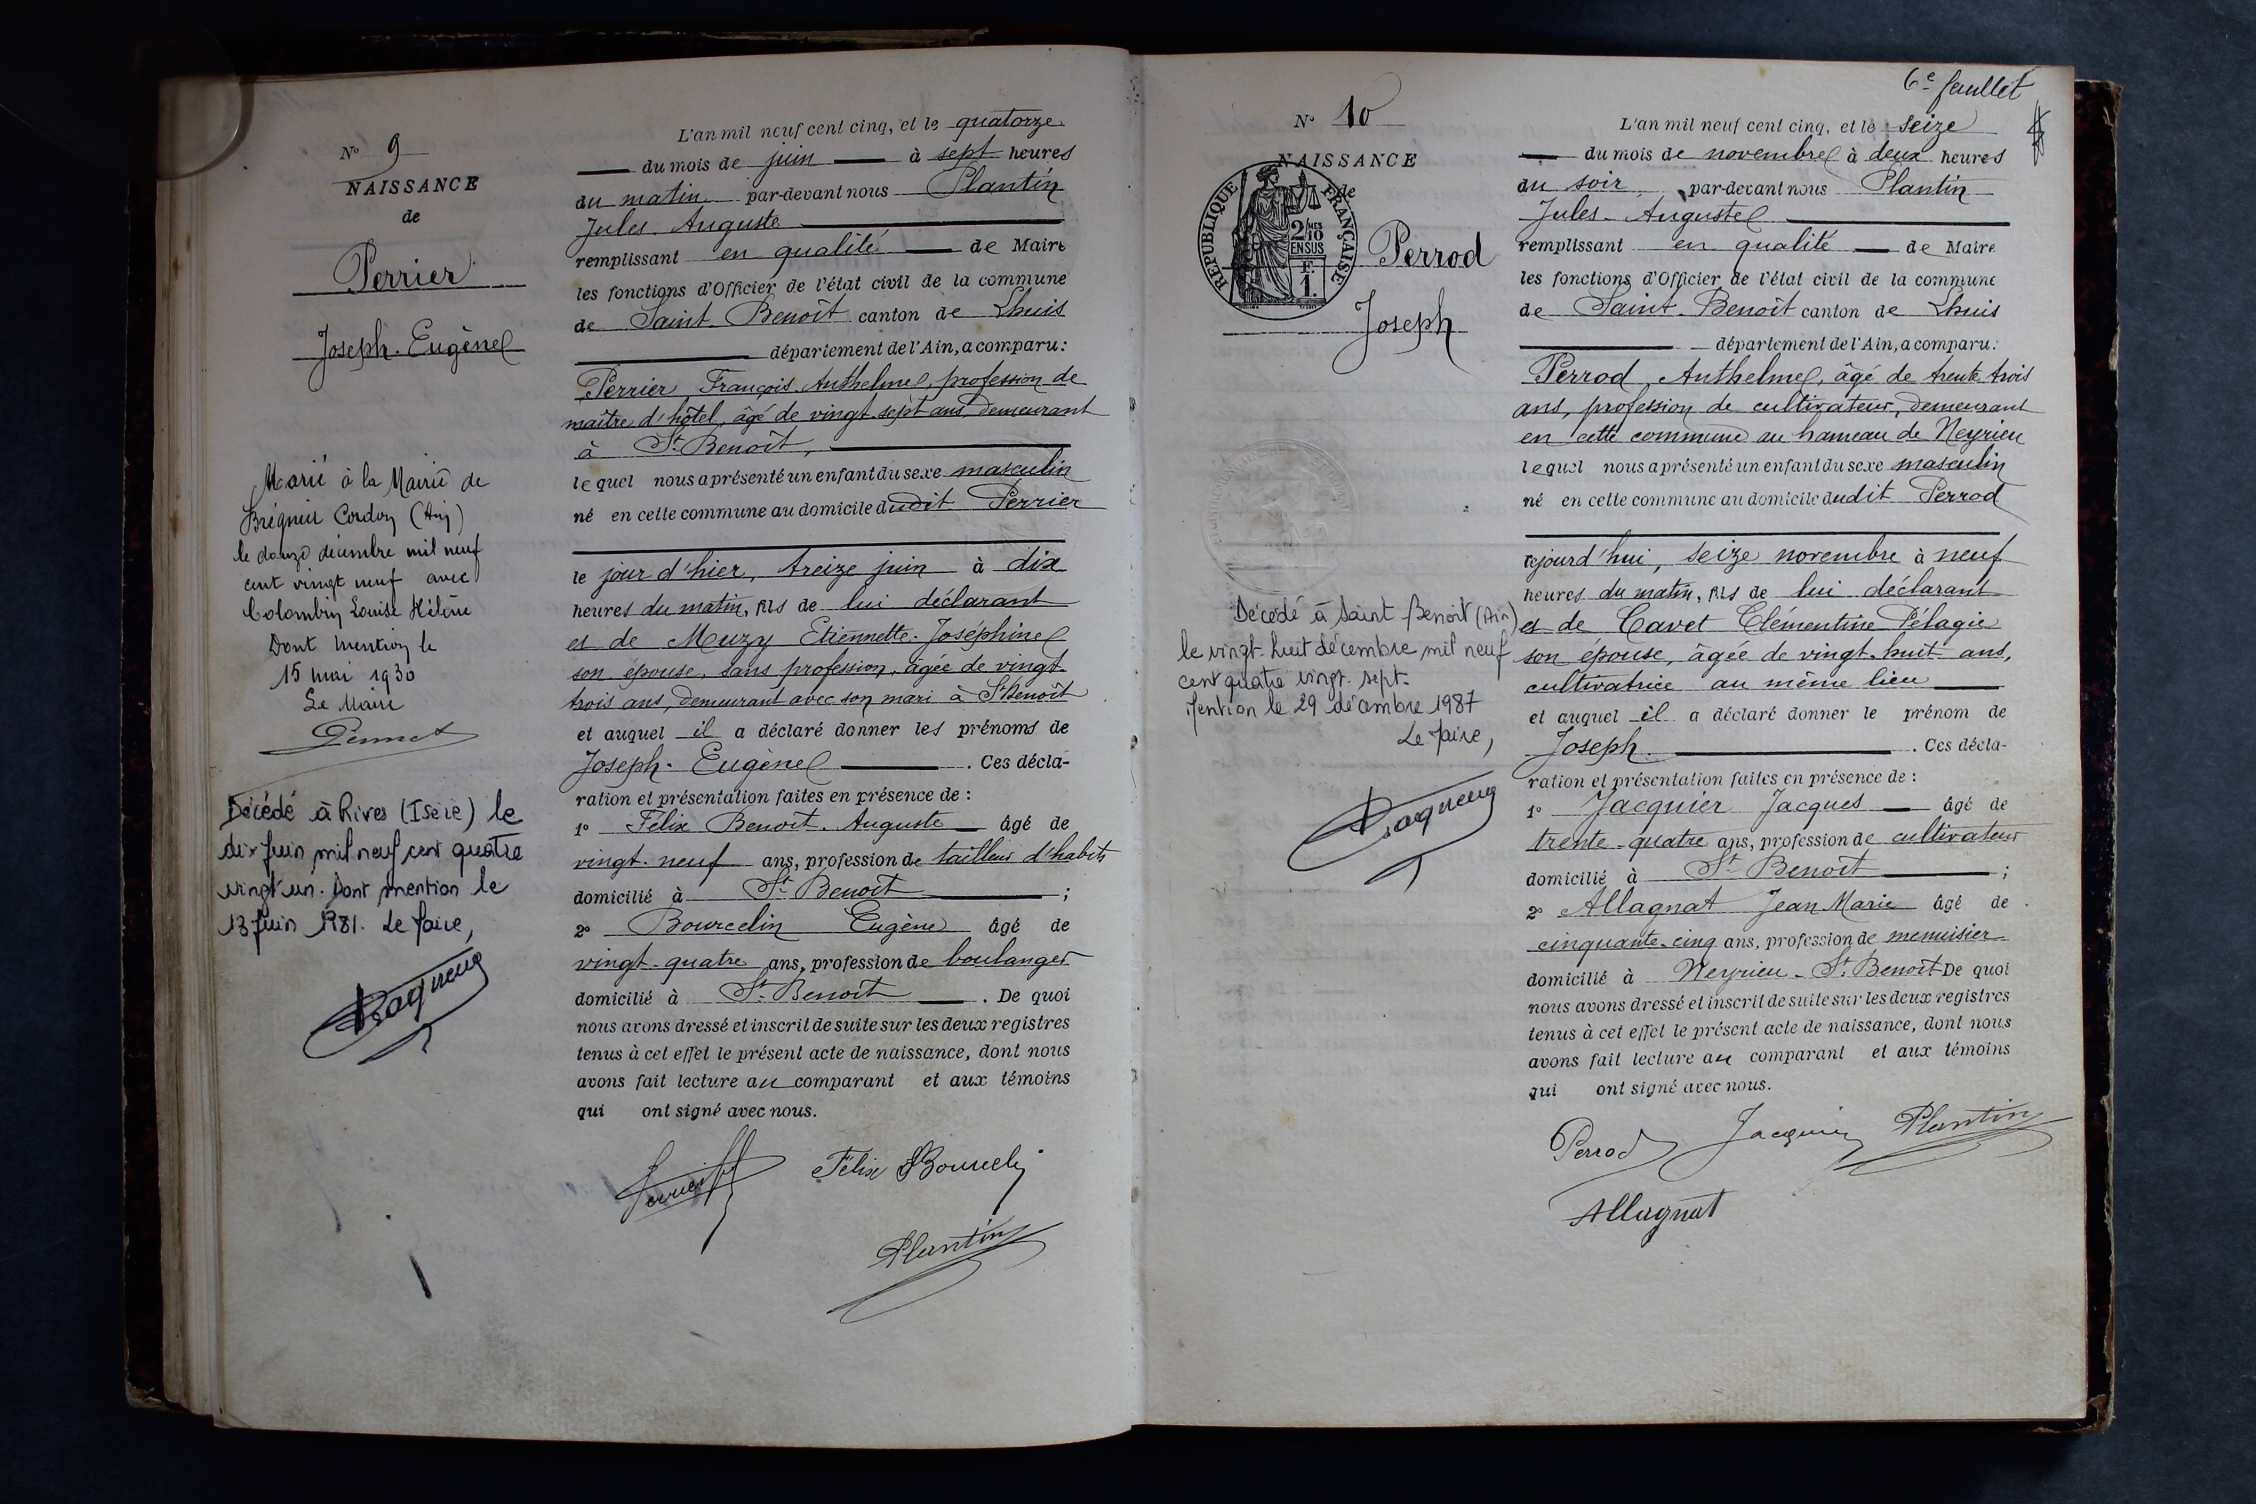 N° 9
NAISSANCE
de
Perrier
Joseph-Eugène
Marié à la Mairie de
Brégnier Cordon (Ain)
le douze décembre mil neuf
cent vingt neuf avec
Colombin Louise Hélène
Dont mention le
15 mai 1930
Le Maire
Décédé à Rives (Isère) le
dix juin mil neuf cent quatre
vingt un. Dont mention le
13 juin 1981. Le Maire,
L'an mil neuf cent cinq, et le quatorze
du mois de juin à sept heures
du matin par-devant nous Plantin
Jules Auguste
remplissant en qualité de Maire
les fonctions d'Officier de l'état civil de la commune
de Saint-Benoît canton de Lhuis
département de l'Ain, a comparu:
Perrier François Anthelme, profession de
maître d'hôtel, âgé de vingt-sept ans demeurant
à St Benoît,
lequel nous a présenté un enfant du sexe masculin
né en cette commune au domicile dudit Perrier
le jour d'hier, treize juin à dix
heures du matin, fils de lui déclarant
et de Muzy Etiennette-Joséphine
son épouse, sans profession, âgée de vingt-
trois ans, demeurant avec son mari à St Benoît
et auquel il a déclaré donner les prénoms de
Joseph-Eugène. Ces décla-
ration et présentation faites en présence de :
1° Félix Benoît-Auguste âgé de
vingt-neuf ans, profession de tailleur d'habits
domicilié à St Benoît ;
2° Bourcelin Eugène âgé de
vingt-quatre ans, profession de boulanger
domicilié à St Benoît. De quoi
nous avons dressé et inscrit de suite sur les deux registres
tenus à cet effet le présent acte de naissance, dont nous
avons fait lecture au comparant et aux témoins
qui ont signé avec nous.
Perrier Félix Bourcelin
Plantin
6e feuillet
N° 10
NAISSANCE
de
REPUBLIQUE FRANÇAISE
2/10MES
EN SUS
F.
1.
Perrod
Joseph
Décédé à Saint-Benoit (Ain)
le vingt-huit décembre mil neuf
cent quatre vingt-sept.
Mention le 29 décembre 1987
Le Maire,
L'an mil neuf cent cinq, et le seize
du mois de novembre à deux heures
du soir, par-devant nous Plantin
Jules-Auguste
remplissant en qualité de Maire
les fonctions d'Officier de l'état civil de la commune
de Saint-Benoît canton de Lhuis
département de l'Ain, a comparu:
Perrod Anthelme, âgé de trente trois
ans, profession de cultivateur, demeurant
en cette commune au hameau de Neyrieu
lequel nous a présenté un enfant du sexe masculin
né en cette commune au domicile dudit Perrod
ajourd'hui, seize novembre à neuf
heures du matin, fils de lui déclarant
et de Cavet Clémentine Pélagie
son épouse, âgée de vingt-huit ans,
cultivatrice au même lieu
et auquel il a déclaré donner le prénom de
Joseph. Ces décla-
ration et présentation faites en présence de :
1° Jacquier Jacques âgé de
trente-quatre ans, profession de cultivateur
domicilié à St Benoît ;
2° Allagnat Jean Marie âgé de
cinquante-cinq ans, profession de menuisier
domicilié à Neyrieu-St Benoît De quoi
nous avons dressé et inscrit de suite sur les deux registres
tenus à cet effet le présent acte de naissance, dont nous
avons fait lecture au comparant et aux témoins
qui ont signé avec nous.
Perrod Jacquier Plantin
Allagnat